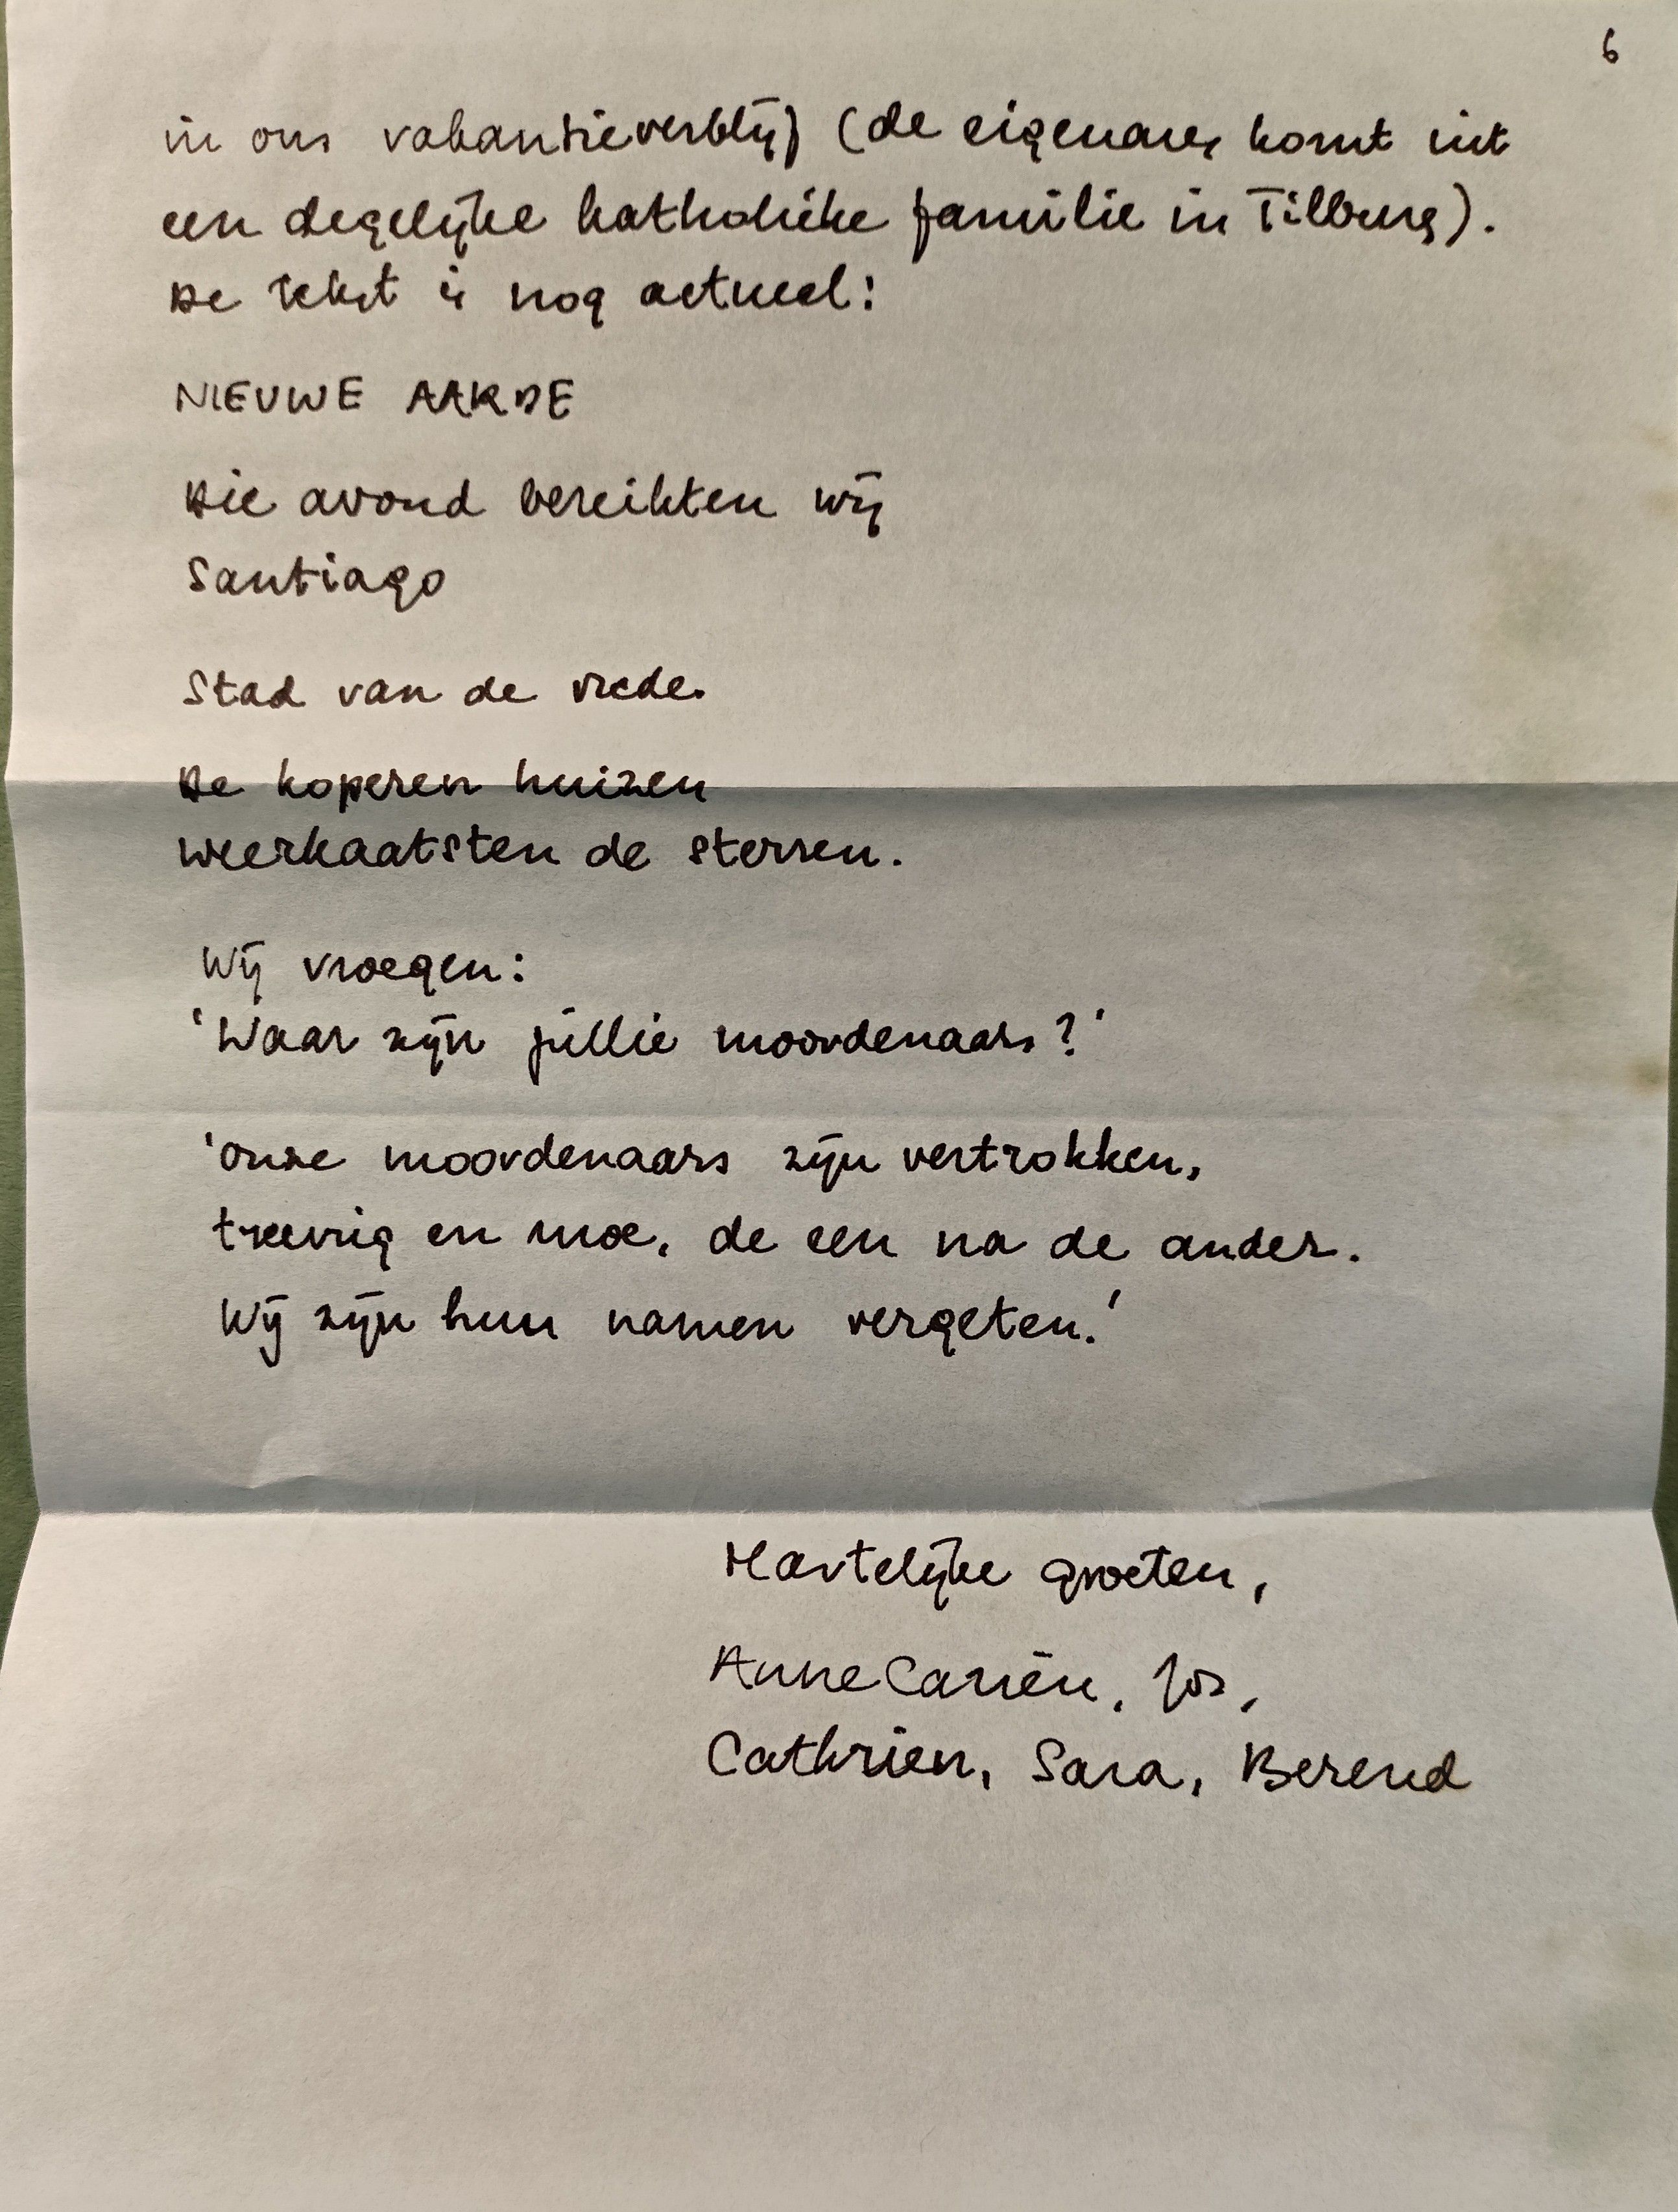 6
in ons vakantieverblijf (de eigenares komt uit
een degelijke katholieke familie in Tilburg).
De tekst is nog actueel:
NIEUWE AARDE
Die avond bereikten wij
Santiago
Stad van de vrede.
De koperen huizen
weerkaatsten de sterren.
Wij vroegen:
'Waar zijn jullie moordenaars?'
'Onze moordenaars zijn vertrokken,
treurig en moe, de een na de ander.
Wij zijn hun namen vergeten.'
Hartelijke groeten,
AnneCarien, Jos,
Cathrien, Sara, Berend